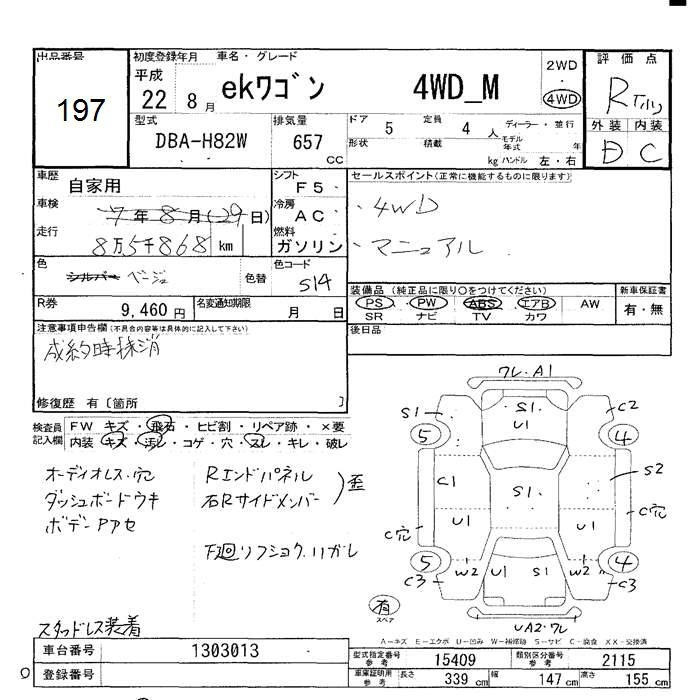 出品番号
197
初度登録年月
平成
22年 8月
車名・グレード
ekワゴン 4WD_M
2WD
・
4WD
評価点
R
外装 内装
D C
型式
DBA-H82W
排気量
657
cc
ドア 5 定員 4 人 ディーラー・並行
形状 積載 kg モデル年式 年
ハンドル 左・右
車歴
自家用
車検
7年8月(29日)
走行
8万5千868 km
シフト
F5
冷房
AC
燃料
ガソリン
セールスポイント(正常に機能するものに限ります)
・4WD
・マニュアル
色
シルバー ベージュ
色替
色コード
S14
R券
9,460円
名変通知期限
月 日
装備品 (純正品に限り○をつけてください)
PS PW ABS エアB AW
SR ナビ TV カワ
新車保証書
有・無
後日品
注意事項申告欄(不具合内容等は具体的に記入して下さい)
成約時抹消
修復歴 有〔箇所 〕
検査員記入欄
FW キズ・飛石・ヒビ割・リペア跡・×要
内装・キズ・汚レ・コゲ・穴・スレ・キレ・破レ
オーディオレス・穴
ダッシュボードウキ
ボデーPアセ
Rエンドパネル
右Rサイドメンバー
歪
下廻リフショク、ハガレ
スタッドレス装着
ワレ・A1
S1
S1
U1
C2
5
4
C1
S1
S2
U1
U1
C穴
C穴
5
4
W2
U1
S1
W2
C3
C3
有
スペア
UA2・ワレ
A－キズ E－エクボ U－凹み W－補修跡 S－サビ C－腐食 XX－交換済
車台番号
1303013
登録番号
型式指定番号
参考
15409
類別区分番号
参考
2115
車庫証明用
参考
長さ 339 cm 幅 147 cm 高さ 155 cm